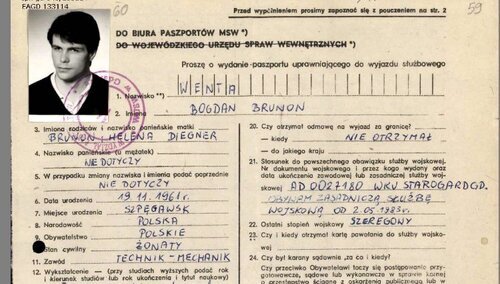 EAGD 133114
60
59
Przed wypełnieniem prosimy zapoznać się z pouczeniem na str. 2
DO BIURA PASZPORTÓW MSW *)
DO WOJEWÓDZKIEGO URZĘDU SPRAW WEWNĘTRZNYCH *)
Proszę o wydanie paszportu uprawniającego do wyjazdu służbowego
1. Nazwisko **) WENTA
2. Imiona BOGDAN BRUNON
3. Imiona rodziców i nazwisko panieńskie matki
BRUNON - HELENA DIEGNER
4. Nazwisko panieńskie (u mężatek)
NIE DOTYCZY
5. W przypadku zmiany nazwiska i imienia podać poprzednie
NIE DOTYCZY
6. Data urodzenia 19.11.1961r.
7. Miejsce urodzenia SZPĘGAWSK
8. Narodowość POLSKA
9. Obywatelstwo POLSKIE
10. Stan cywilny ŻONATY
11. Zawód TECHNIK-MECHANIK
12. Wykształcenie - (przy studiach wyższych podać rok
i kierunek studiów lub rok ukończenia i tytuł naukowy)
20. Czy otrzymał odmowę na wyjazd za granicę?
- kiedy NIE OTRZYMAŁ
- do jakiego kraju
21. Stosunek do powszechnego obowiązku służby wojskowej.
Nr dokumentu wojskowego i przez kogo wydany oraz
data ukończenia zawodowej lub zasadniczej służby woj-
skowej AD 0027180 WKU STAROGARD GD.
ODBYWAM ZASADNICZĄ SŁUŻBĘ
WOJSKOWĄ OD 2.05.1983r.
22. Ostatni stopień wojskowy SZEREGOWY
23. Czy i kiedy otrzymał kartę powołania do służby wojsko-
wej
24. Czy był karany sądownie, za co i kiedy?
Czy przeciwko Obywatelowi toczy się postępowanie przygo-
towawcze, sądowe lub wykonawcze w sprawie karnej